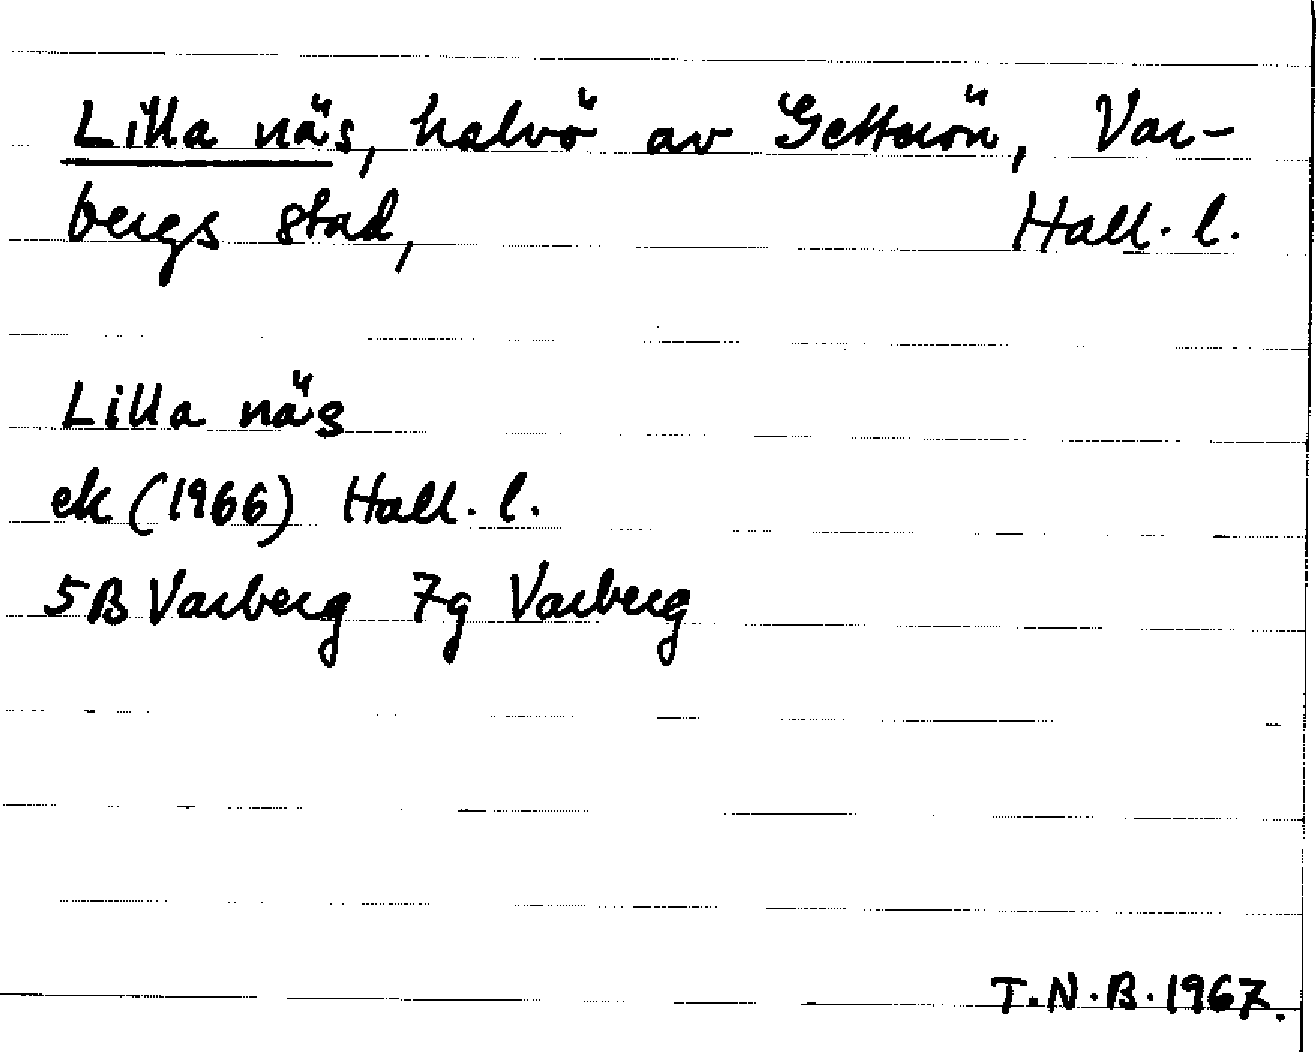 Lilla näs, halvö av Getterön, Var-
bergs stad, Hall. l.
Lilla näs
ek (1966) Hall. l.
5B Varberg 7g Varberg
T.N.B. 1967.